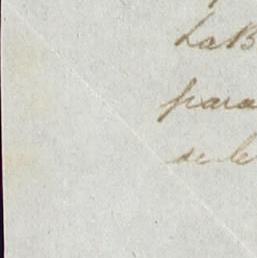 LaB
para
se le